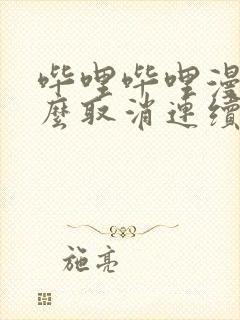 哔哩哔哩漫
么取消连续
施亮